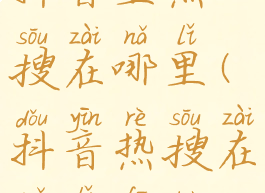 sōu zài nǎ lǐ
搜在哪里(
dǒu yīn rè sōu zài
抖音热搜在